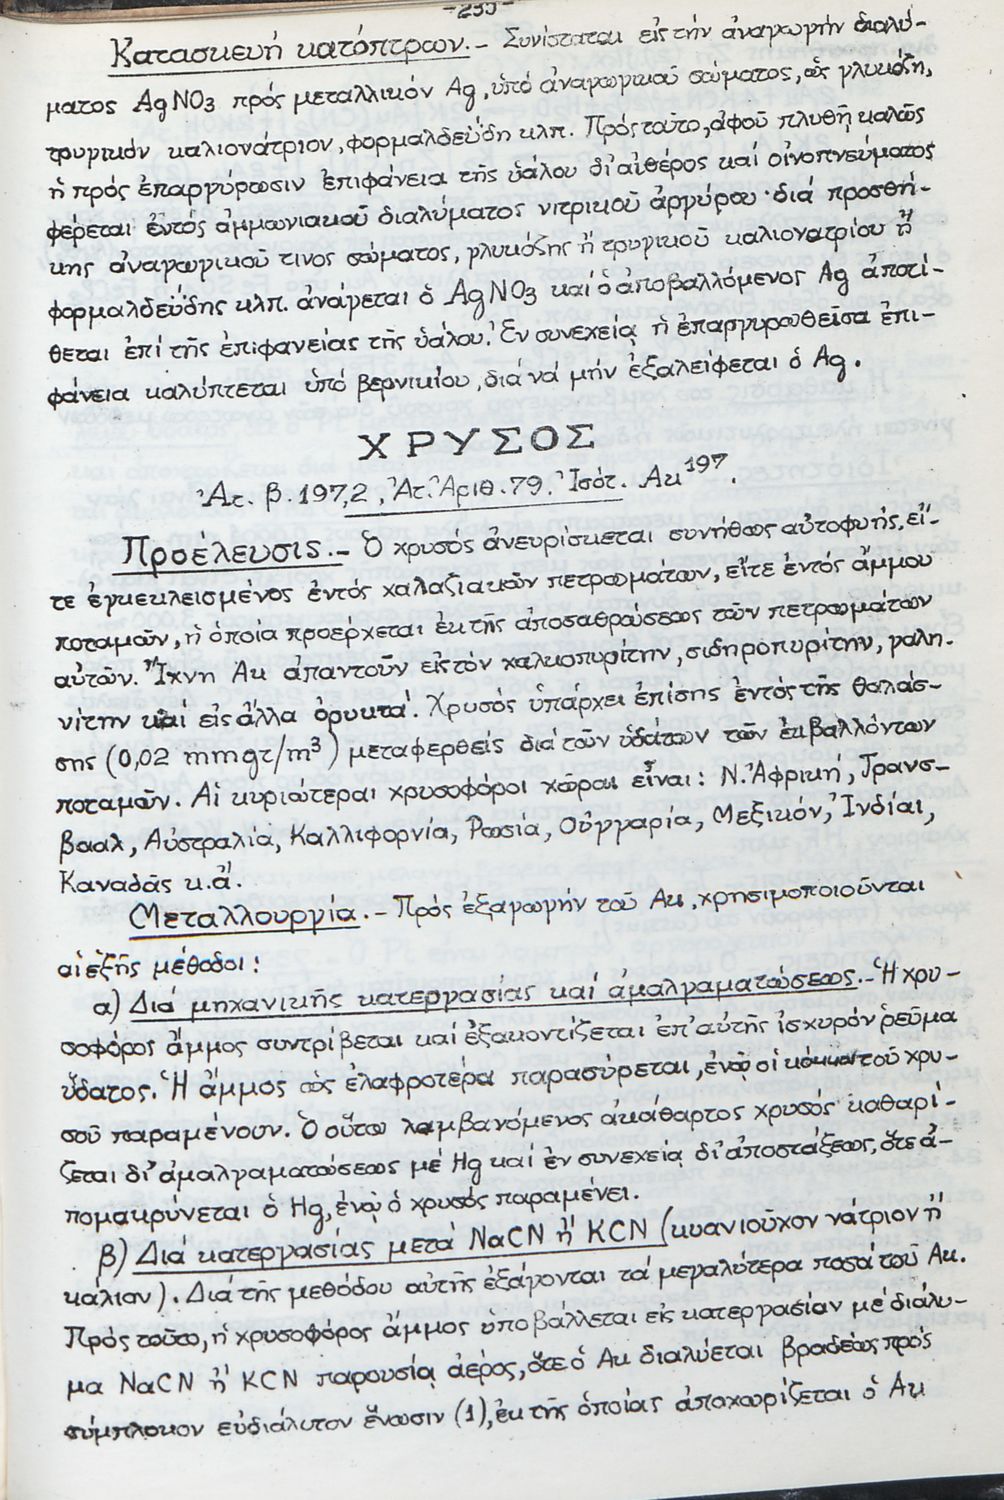 -255-
Κατασκευή κατόπτρων.- Συνίσταται εἰς τήν ἀναγωγήν διαλύ-
ματος AgNO3 πρός μεταλλικόν Ag, ὑπό ἀναγωγικοῦ σώματος, ὡς γλυκόζη,
τρυγικόν καλιονάτριον, φορμαλδεΰδη κλπ. Πρός τοῦτο, ἀφοῦ πλυθῇ καλῶς
ἡ πρός ἐπαργύρωσιν ἐπιφάνεια τῆς ὑάλου δι' αἰθέρος καί οἰνοπνεύματος
φέρεται ἐντός ἀμμωνιακοῦ διαλύματος νιτρικοῦ ἀργύρου· διά προσθή-
κης ἀναγωγικοῦ τινος σώματος, γλυκόζης ἤ τρυγικοῦ καλιονατρίου ἤ
φορμαλδεΰδης κλπ. ἀνάγεται ὁ AgNO3 καί ὁ ἀποβαλλόμενος Ag ἀποτί-
θεται ἐπί τῆς ἐπιφανείας τῆς ὑάλου. Ἐν συνεχείᾳ ἡ ἐπαργυρωθεῖσα ἐπι-
φάνεια καλύπτεται ὑπό βερνικίου, διά νά μήν ἐξαλείφεται ὁ Ag.
ΧΡΥΣΟΣ
Ἀτ. β. 197,2, Ἀτ. Ἀριθ. 79. Ἰσότ. Au197.
Προέλευσις.- Ὁ χρυσός ἀνευρίσκεται συνήθως αὐτοφυής, εἴ-
τε ἐγκεκλεισμένος ἐντός χαλαζιακῶν πετρωμάτων, εἴτε ἐντός ἄμμου
ποταμῶν, ἡ ὁποία προέρχεται ἐκ τῆς ἀποσαθρώσεως τῶν πετρωμάτων
αὐτῶν. Ἴχνη Au ἀπαντοῦν εἰς τόν χαλκοπυρίτην, σιδηροπυρίτην, γαλη-
νίτην καί εἰς ἄλλα ὀρυκτα. Χρυσός ὑπάρχει ἐπίσης ἐντός τῆς θαλάσ-
σης (0,02 mmgr/m3) μεταφερθείς διά τῶν ὑδάτων τῶν ἐκβαλλόντων
ποταμῶν. Αἱ κυριώτεραι χρυσοφόροι χῶραι εἶναι: Ν. Ἀφρική, Τρανσ-
βααλ, Αὐστραλία, Καλλιφορνία, Ρωσία, Οὑγγαρία, Μεξικόν, Ἰνδίαι,
Καναδᾶς κ.ἄ.
Μεταλλουργία.- Πρός ἐξαγωγήν τοῦ Au, χρησιμοποιοῦνται
αἱ ἑξῆς μέθοδοι:
α) Διά μηχανικῆς κατεργασίας καί ἀμαλγαματώσεως.- Ἡ χρυ-
σοφόρος ἄμμος συντρίβεται καί ἐξακοντίζεται ἐπ' αὐτῆς ἰσχυρόν ρεῦμα
ὕδατος. Ἡ ἄμμος ὡς ἐλαφροτέρα παρασύρεται, ἐνῶ οἱ κόκκοι τοῦ χρυ-
σοῦ παραμένουν. Ὁ οὕτω λαμβανόμενος ἀκάθαρτος χρυσός καθαρί-
ζεται δι' ἀμαλγαματώσεως μέ Hg καί ἐν συνεχείᾳ δι' ἀποστάξεως, ὅτε ἀ-
πομακρύνεται ὁ Hg, ἐνῷ ὁ χρυσός παραμένει.
β) Διά κατεργασίας μετά NaCN ἤ KCN (κυανιοῦχον νάτριον ἤ
κάλιον). Διά τῆς μεθόδου αὐτῆς ἐξάγονται τά μεγαλύτερα ποσά τοῦ Au.
Πρός τοῦτο, ἡ χρυσοφόρος ἄμμος υποβάλλεται εἰς κατεργασίαν μέ διάλυ-
μα NaCN ἤ KCN παρουσίᾳ ἀέρος, ὅτε ὁ Au διαλύεται βραδέως πρός
σύμπλοκον εὐδιάλυτον ἕνωσιν (1), ἐκ τῆς ὁποίας ἀποχωρίζεται ὁ Au